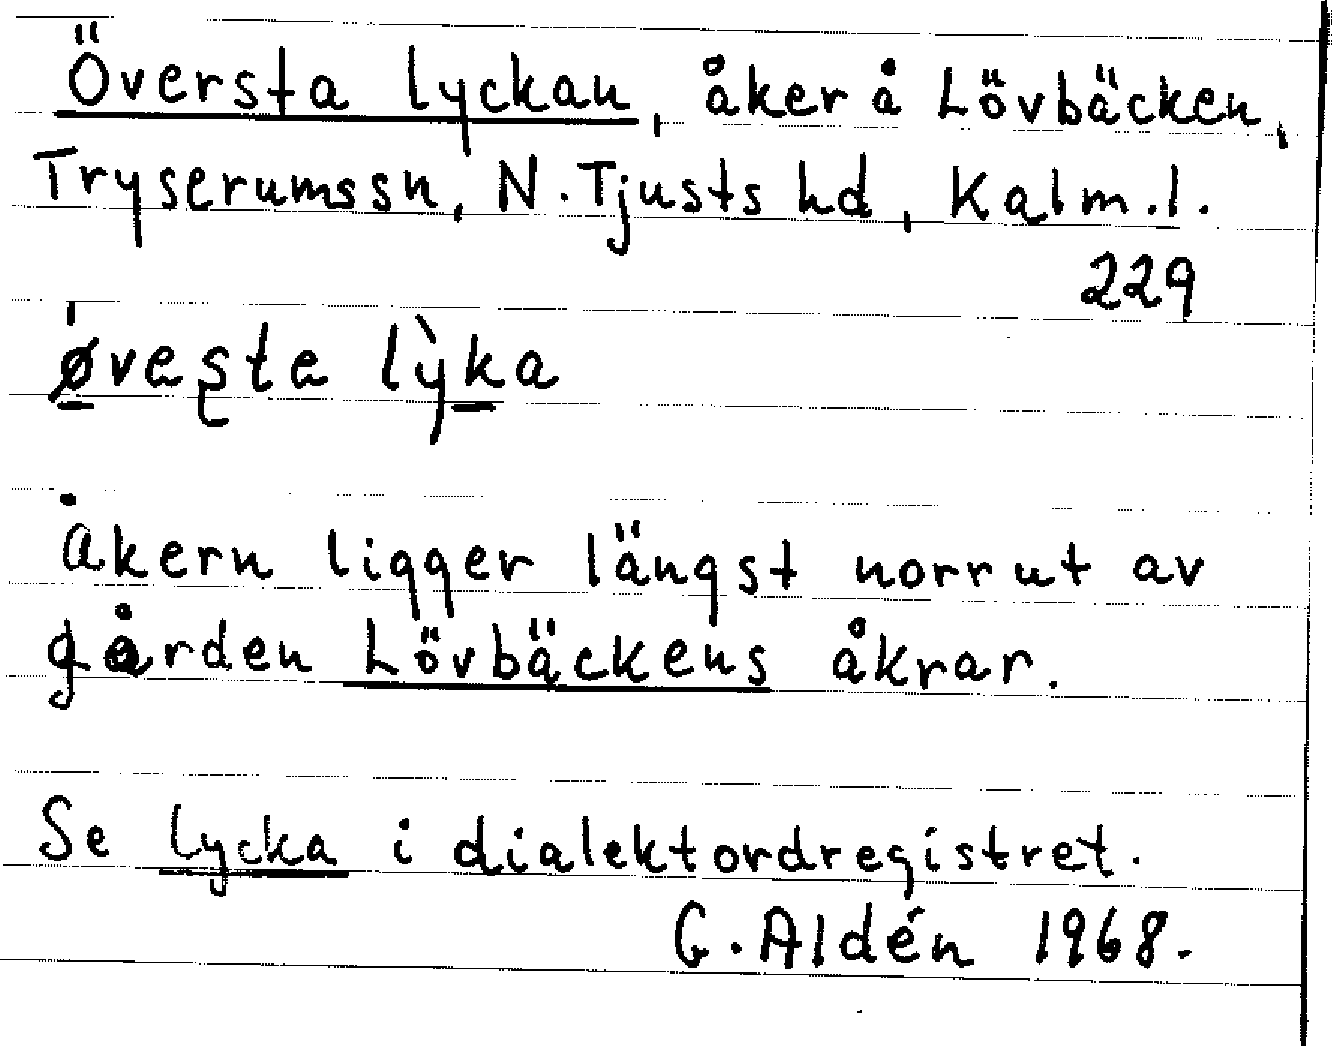 Översta lyckan, åker å Lövbäcken,
Tryserumssn, N. Tjusts hd, Kalm.l.
229
øveste lỳka
Åkern ligger längst norrut av
gården Lövbäckens åkrar.
Se lycka i dialektordregistret.
G. Aldén 1968.